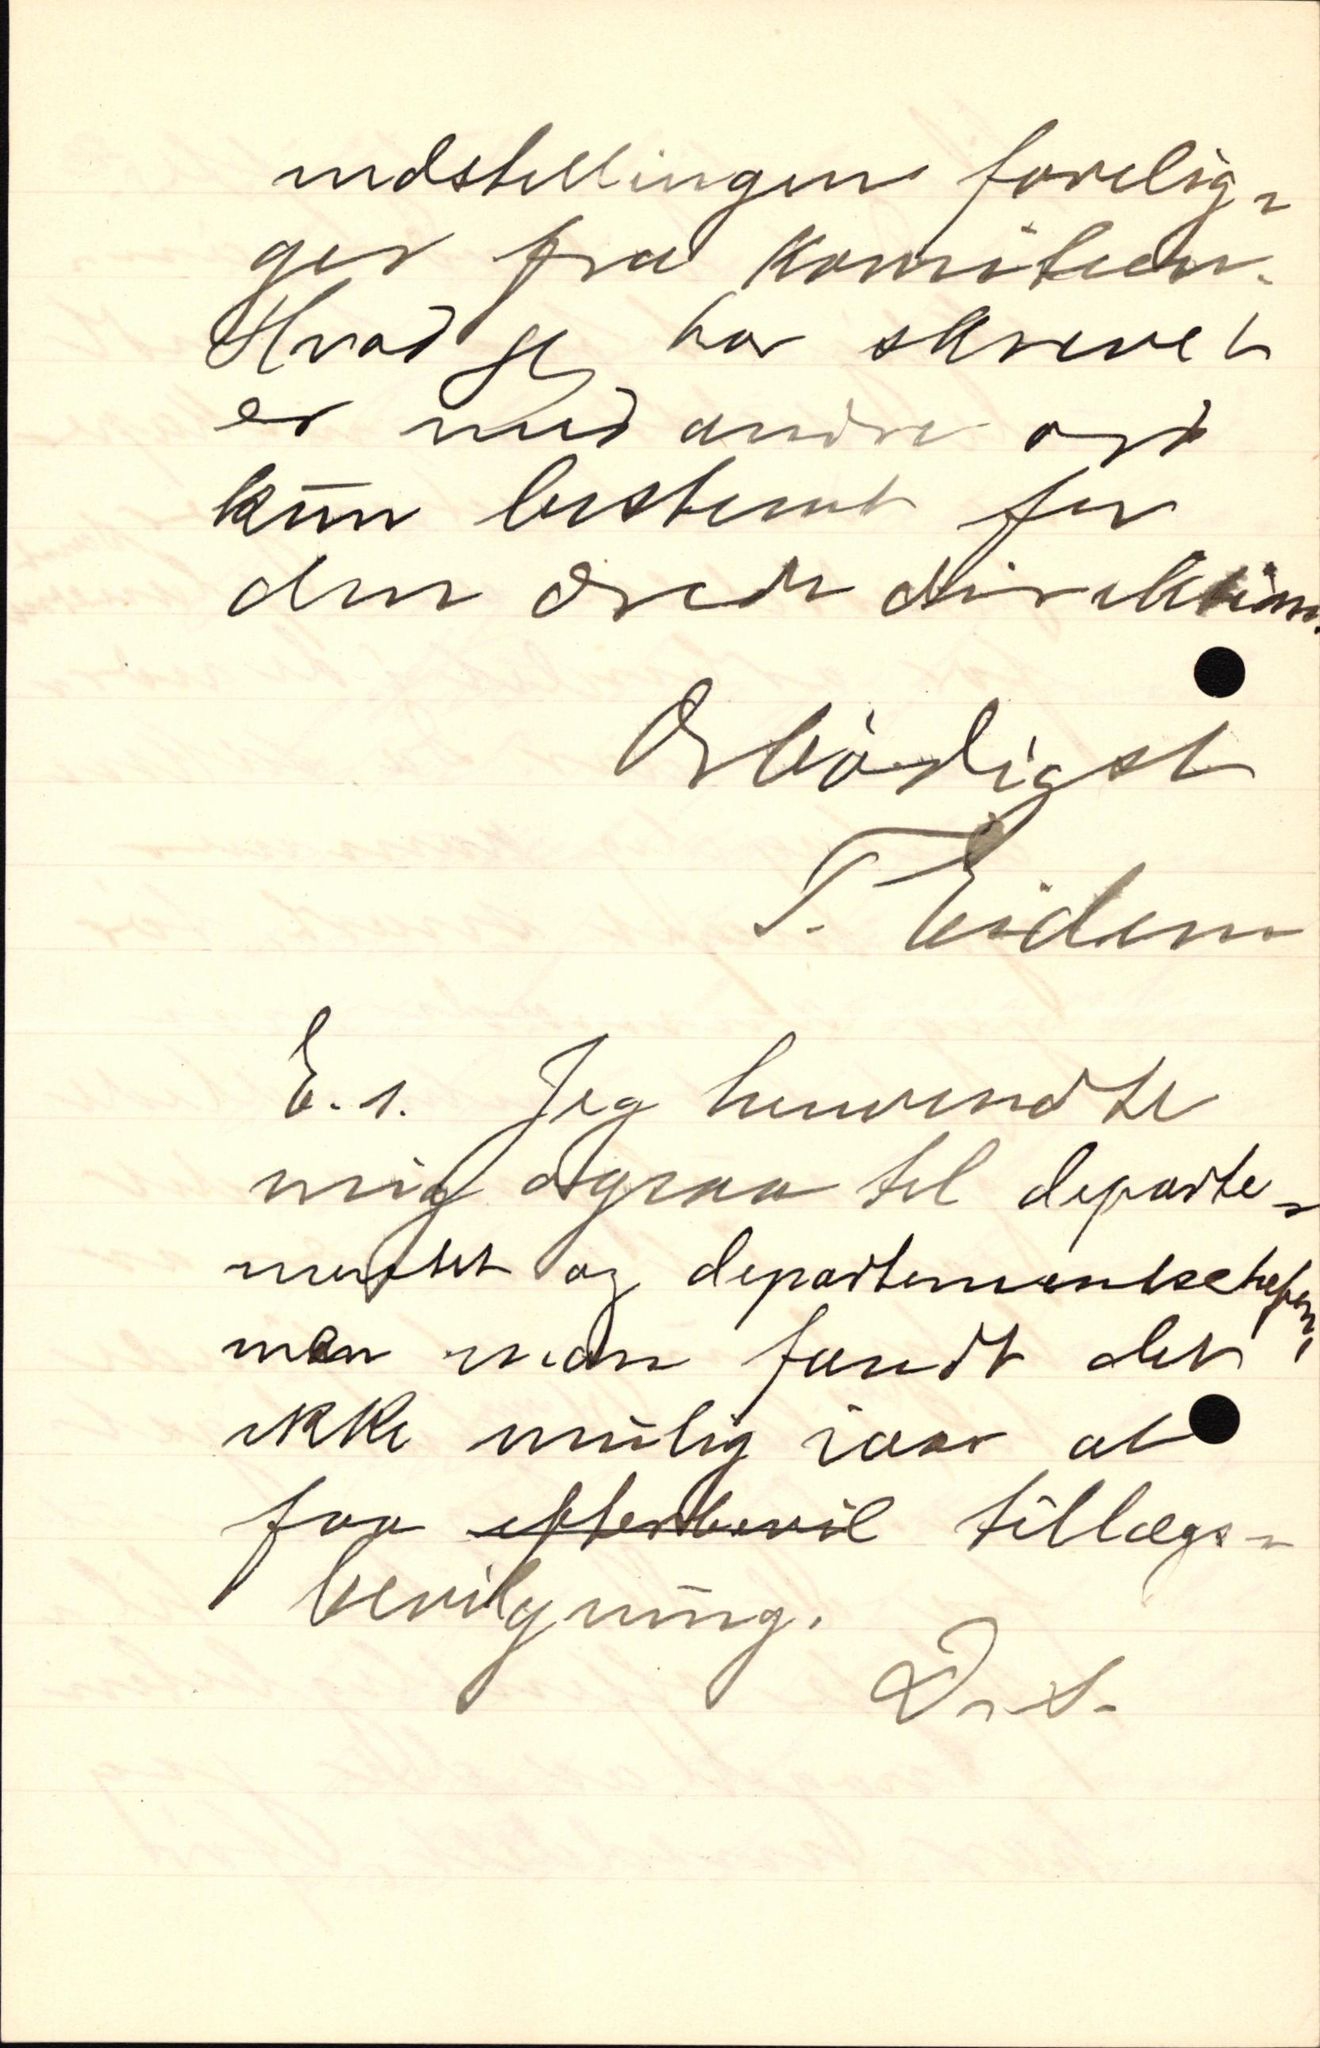 indstillingen forelig-
ger fra komiteen.
Hvad jeg har skrevet
er med andre ord
kun bestemt for
den ærede direktion.
Ærbödigst
T. Eidem
E. s. Jeg henvendte
mig ogsaa til departe-
mentet og departementschefen,
men man fandt det
ikke mulig iaar at
faa efterbevil tillægs-
bevilgning.
D. S.